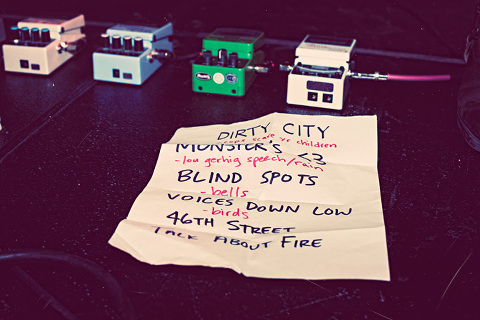 DIRTY CITY
scare yr children
MONSTER'S <3
- lou gerhig speech/rain
BLIND SPOTS
- bells
VOICES DOWN LOW
- birds
46TH STREET
TALK ABOUT FIRE